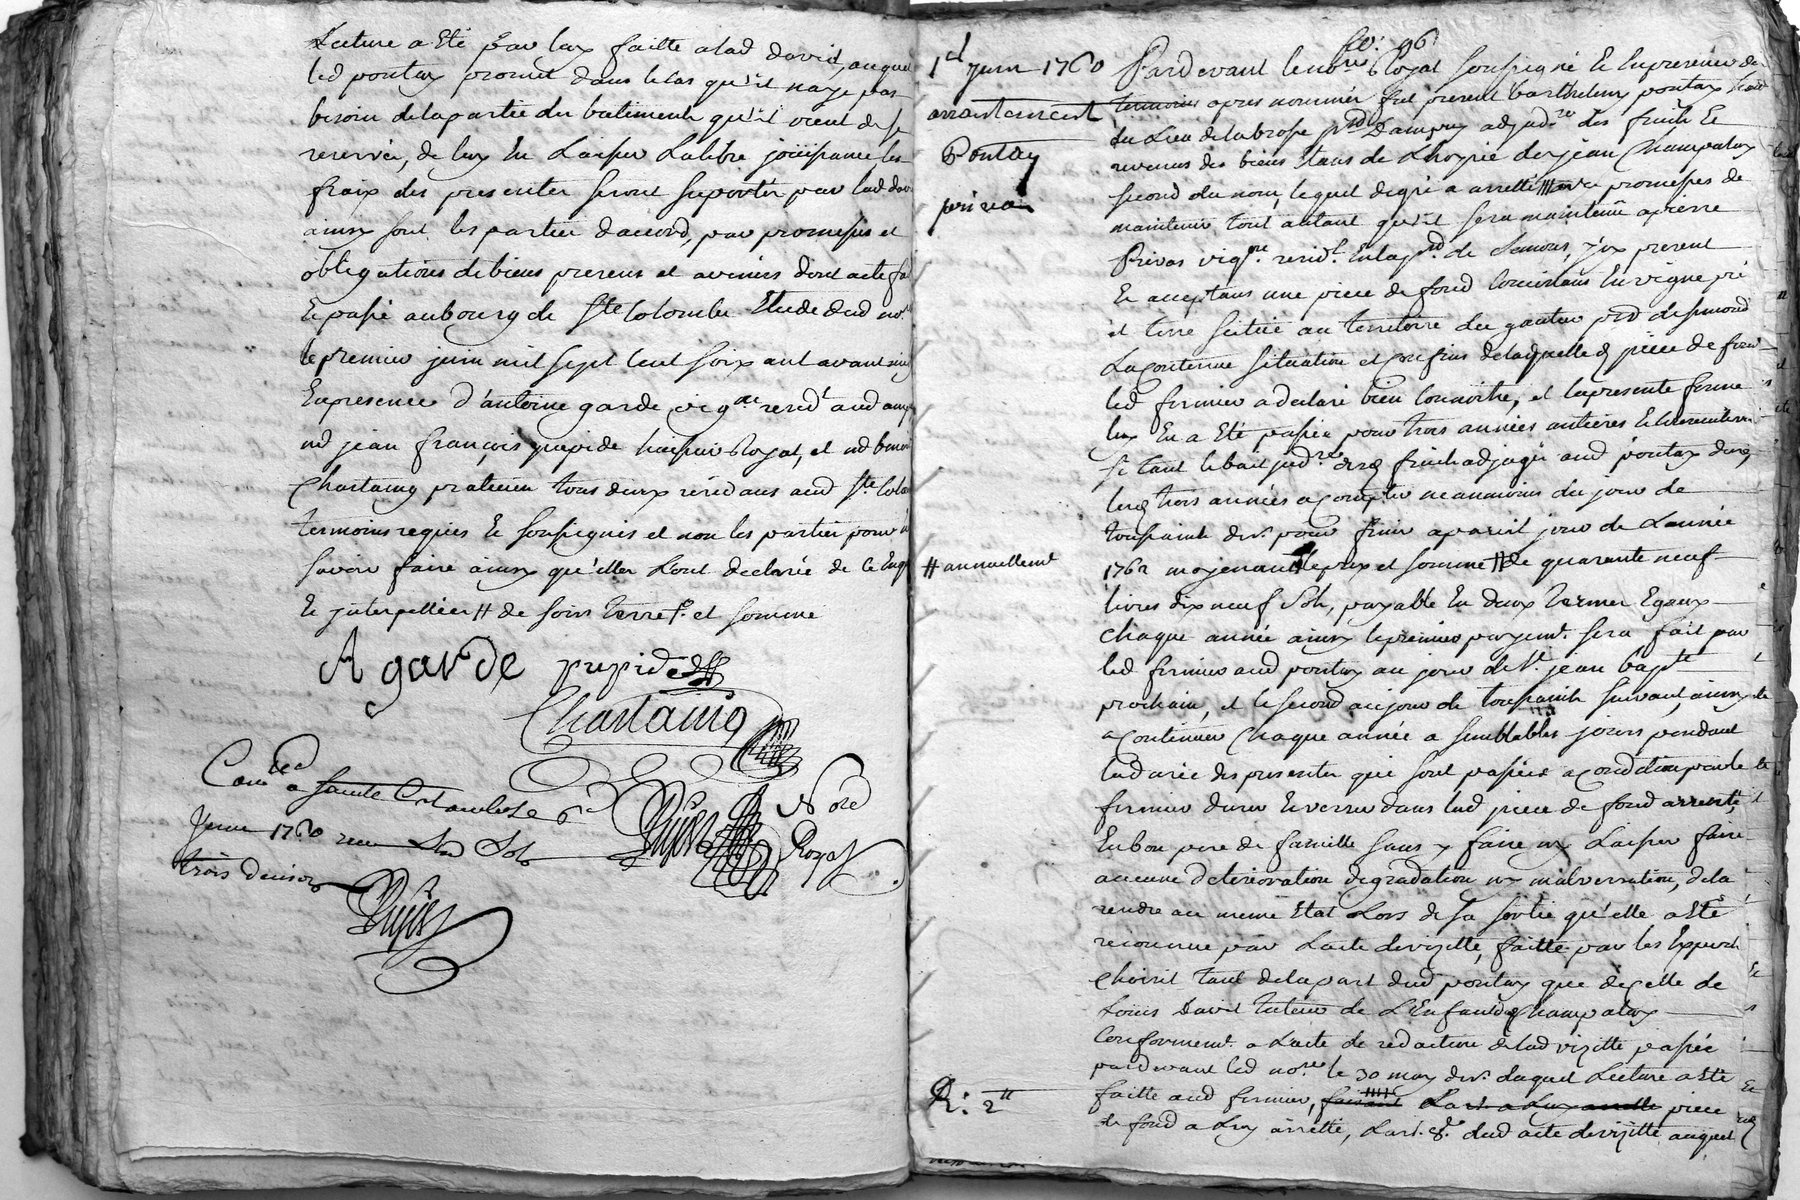 Lecture a Eté par luy faitte alad david, auquel
led pontuy promet dans le cas qu'il naye pas
besoin de la partie du batiment qu'il vient de se
reserver, de luy En Laisser La libre joüissance les
fraix des presentes seront suportés par lad david
ainsy sont les parties daccord, par promesses et
obligations de biens presens et avenirs dont acte fa
Et passé au bourg de Ste Colombe Etude dud no.re
le premier juin mil sept Cent soixant avant midy
En presence d'antoine garde vigon residt aud
md jean françois prepide huissier Royal, et md benoi
Chastaing praticien tous deux résidans aud Ste Colom
temoins requis Et soussignés et non les parties pour ne
savoir faire ainsy qu'elles L'ont declarée de ce Enq
Et interpellées # de soins terre P. et somme
A garde prepide
Chastaing
Coniée a Sainte Colombe le 6
Juin 1760 reçu Sols
trois deniers
Dujast
Dujast
Nore
Royal
fo: 96
1er juin 1760
arrantement
Pontuy
privas
# annuellemt
R: 2
Pardevant le nore Royal soussigné Et En presence des
temoins apres nommés fut present barthelemy pontuy
du Lieu de la brosse psse Dampuy adjudre des fruits Et
revenus des biens Etans de L'hoyrie de jean Champaloy
second du nom, lequel de gré a arretté avec promesses de
maintenir tout autant qu'il sera maintenü a pierre
Privas vigon residt En la psse de Semons, icy present
Et acceptant une piece de fond Consistant En vigne pré
et terre scituée au territoire du gautier psse de simond
La Contenue situation et confins de laquelle piece de fond
led fermier a declaré bien Connoitre, et la presente ferme
luy En a Eté passée pour trois années antieres Et
si tant le bail judre desd fruits adjugés aud pontuy dure,
lesd trois années a Compter neanmoins du jour de
toussaints der. pour finir a pareil jour de L'année
1762 moyenant le prix et somme # de quarante neuf
livres dix neuf Sols, payable En deux termes Egaux
Chaque année ainsy le premier payemt. sera fait par
led fermier aud pontuy au jour de St. jean bapte
prochain, et le second au jour de toussaints suivant, ainsy
a Continuer Chaque année a semblables jours pendant
la durée des presentes qui sont passées a condition par le
fermier d'user Et verser dans lad piece de fond arrentée
En bon pere de famille sans y faire ny Laisser faire
aucune deterioration degradation ny malversation, de la
rendre au meme Etat Lors de sa sortie qu'elle a Eté
reconnue par L'acte de vizitte, faitte par les Experts
Choisit tant de la part dud pontuy que de Celle de
Loüis David tuteur de L'Enfant de Champaloy
Conformemt. a L'acte de redaction de lad vizitte passée
pardevant led nore le 30 may der. duquel Lecture a Eté
faitte aud fermier, piece
de fond a Luy arrettée, L'art. 8e. dud acte de vizitte auquel